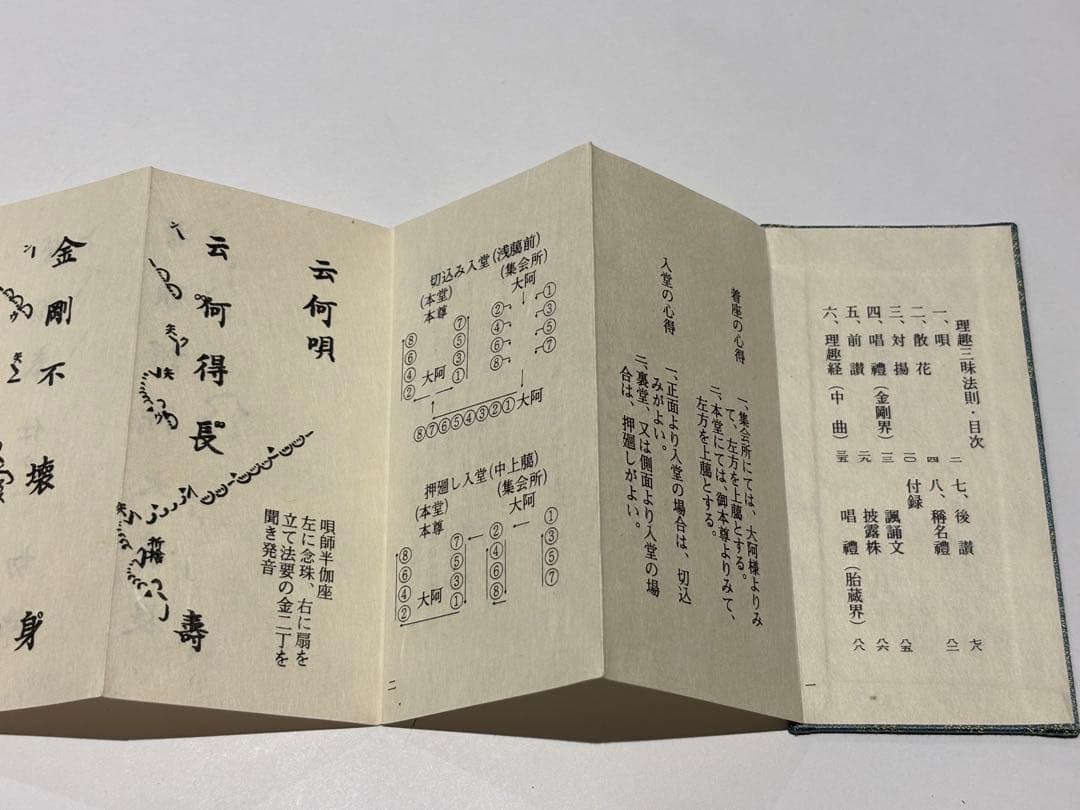 理趣三昧法則・目次
一、唄 二
二、散花 四
三、対揚 一〇
四、唱禮(金剛界) 一三
五、前讃 二九
六、理趣経(中曲) 三五
七、後讃 七八
八、稱名禮 八二
付録
諷誦文 八五
披露株 八六
唱禮(胎蔵界) 八八
一
着座の心得
一、集会所にては、大阿様よりみ
て、左方を上﨟とする。
二、本堂にては、御本尊よりみて、
左方を上﨟とする。
入堂の心得
一、正面より入堂の場合は、切込
みがよい。
二、裏堂、又は側面より入堂の場
合は、押廻しがよい。
切込み入堂(浅﨟前)
(集会所)
大阿
①
③
⑤
⑦
②
④
⑥
⑧
(本堂)
本尊
⑦
⑤
③
①
大阿
⑧
⑥
④
②
⑧⑦⑥⑤④③②①大阿
押廻し入堂(中上﨟)
(集会所)
大阿
①
③
⑤
⑦
②
④
⑥
⑧
(本堂)
本尊
⑦
⑤
③
①
大阿
⑧
⑥
④
②
二
云何唄
唄師半伽座
左に念珠、右に扇を
立て法要の金二丁を
聞き発音
云何得長
壽
金剛不壊
身